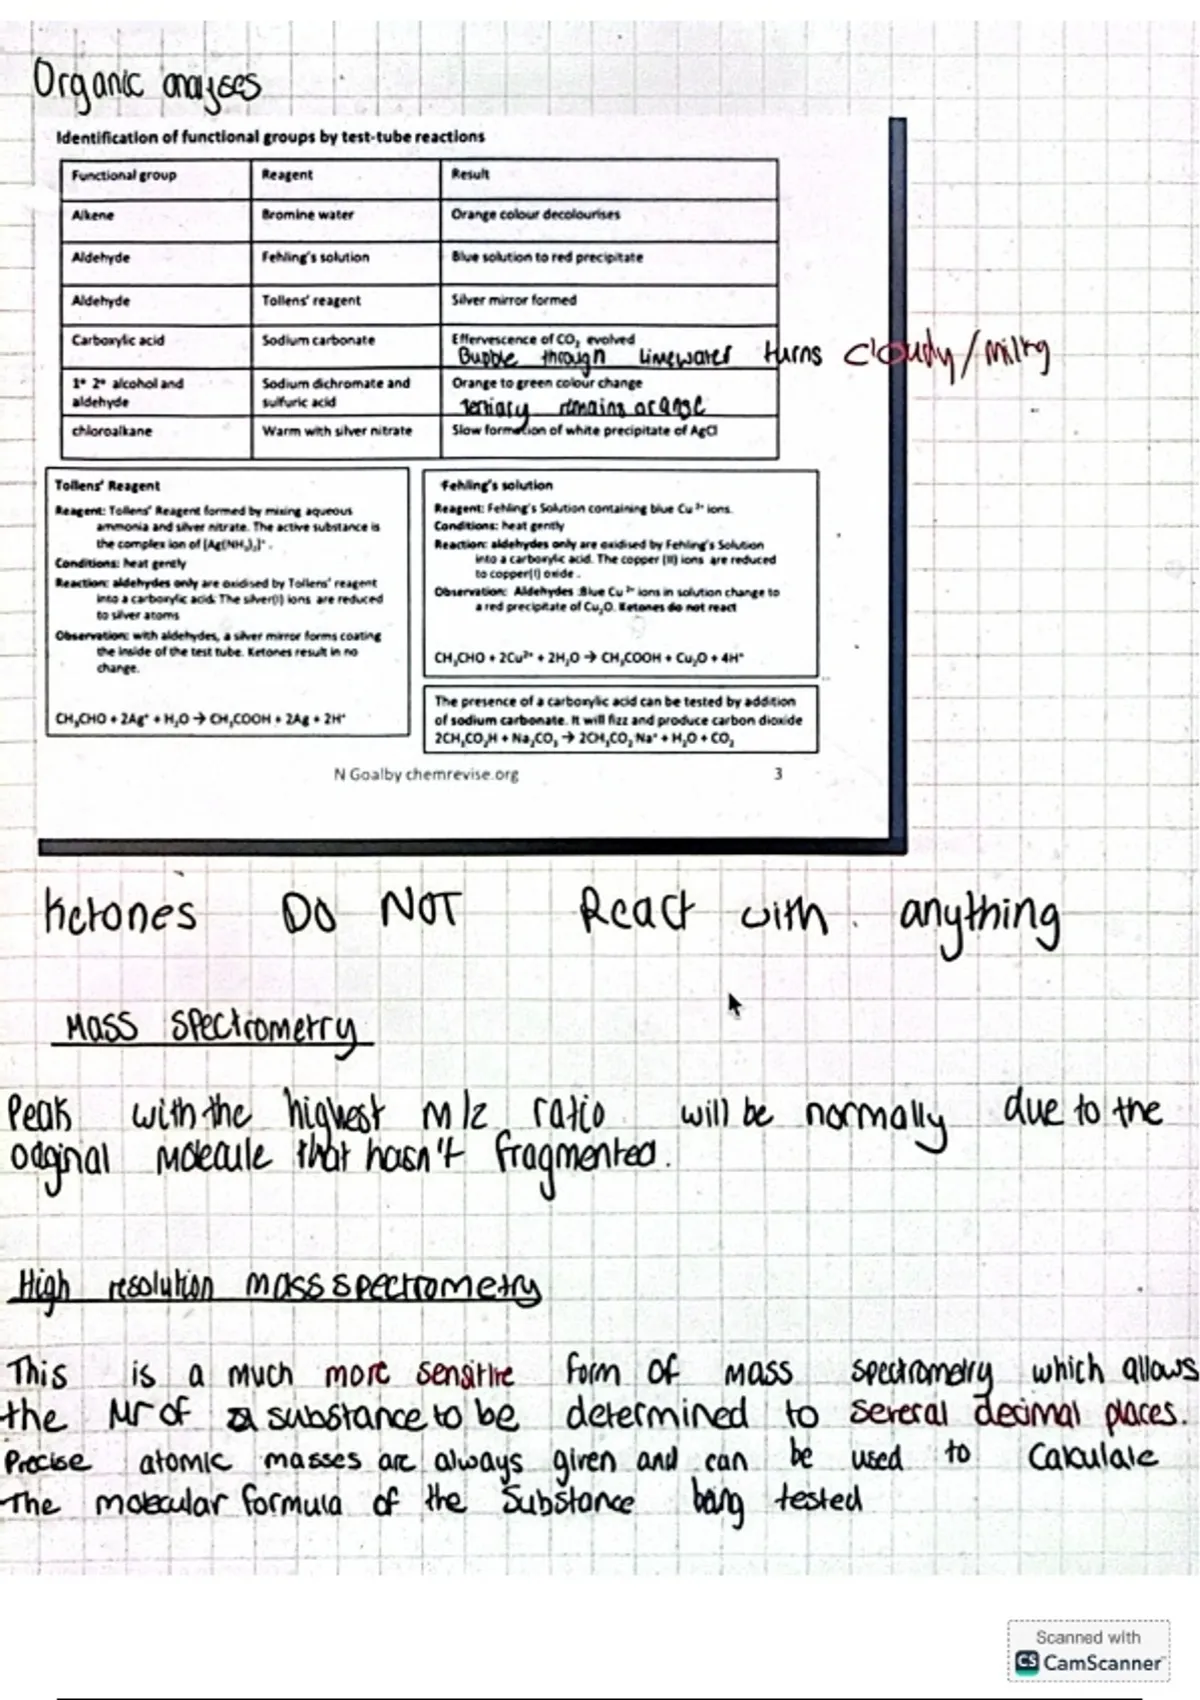 Organic analyses
Identification of functional groups by test-tube reactions
Functional group Reagent Result
Alkene Bromine water Orange colour decolourises
Aldehyde Fehling's solution Blue solution to red precipitate
Aldehyde Tollens' reagent Silver mirror formed
Carboxylic acid Sodium carbonate Effervescence of CO₂ evolved
Bubble through limewater turns cloudy/milky
1° 2° alcohol and aldehyde Sodium dichromate and sulfuric acid Orange to green colour change
Tertiary remains orange
chloroalkane Warm with silver nitrate Slow formation of white precipitate of AgCl
Tollens' Reagent
Reagent: Tollens' Reagent formed by mixing aqueous
ammonia and silver nitrate. The active substance is
the complex ion of [Ag(NH₃)₂]⁺.
Conditions: heat gently
Reaction: aldehydes only are oxidised by Tollens' reagent
into a carboxylic acid. The silver(I) ions are reduced
to silver atoms
Observation: with aldehydes, a silver mirror forms coating
the inside of the test tube. Ketones result in no
change.
CH₃CHO + 2Ag⁺ + H₂O → CH₃COOH + 2Ag + 2H⁺
Fehling's solution
Reagent: Fehling's Solution containing blue Cu²⁺ ions.
Conditions: heat gently
Reaction: aldehydes only are oxidised by Fehling's Solution
into a carboxylic acid. The copper (II) ions are reduced
to copper(I) oxide .
Observation: Aldehydes :Blue Cu²⁺ ions in solution change to
a red precipitate of Cu₂O. Ketones do not react
CH₃CHO + 2Cu²⁺ + 2H₂O → CH₃COOH + Cu₂O + 4H⁺
The presence of a carboxylic acid can be tested by addition
of sodium carbonate. It will fizz and produce carbon dioxide
2CH₃CO₂H + Na₂CO₃ → 2CH₃CO₂⁻Na⁺ + H₂O + CO₂
N Goalby chemrevise.org 3
Ketones DO NOT React with anything
Mass spectrometry
Peak with the highest m/z ratio will be normally due to the
original molecule that hasn't fragmented.
High resolution mass spectrometry
This is a much more sensitive form of mass spectrometry which allows
the Mr of a substance to be determined to several decimal places.
Precise atomic masses are always given and can be used to calculate
The molecular formula of the substance being tested
Scanned with
CS CamScanner